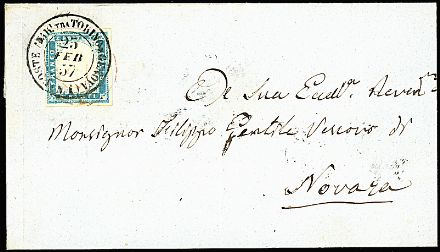 POSTE AMB. TRA TORINO
25
FEB
57
FRANCO
A Sua Eccll.ª Reven.ma
Monsignor Filippo Gentile Vescovo di
Novara